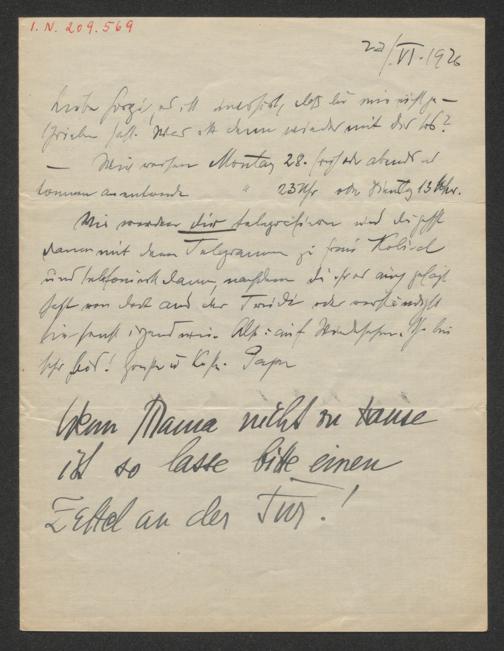 I. N. 209.569
22/VI. 1926
Liebe Gorgi, es ist unerhört, daß du mir nicht ge-
schrieben hast. Was ist denn wieder mit dir los?
— Wir reisen Montag 28. früh oder abends u
kommen ankommende " 23 Uhr oder Dienstag 13 Uhr.
Wir werden dir telegrafieren und du gehst
dann mit dem Telegramm zu Frau Kolisch
und telefonierst dann, nachdem du
hast von dort aus der Trude oder verständigst
sie sonst irgendwie. Also: auf Wiedersehen. Ich bin
sehr bös! Grüße u Küsse. Papa
Wenn Mama nicht zu Hause
ist so lasse bitte einen
Zettel an der Tür!